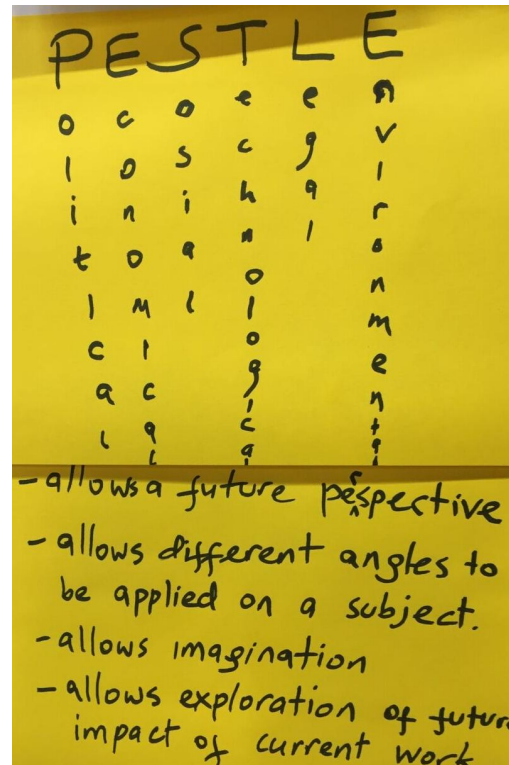 PESTLE
olitical
conomical
osial
echnological
egal
nvironmental
- allows a future perspective
- allows different angles to
be applied on a subject.
- allows imagination
- allows exploration of futur
impact of current work